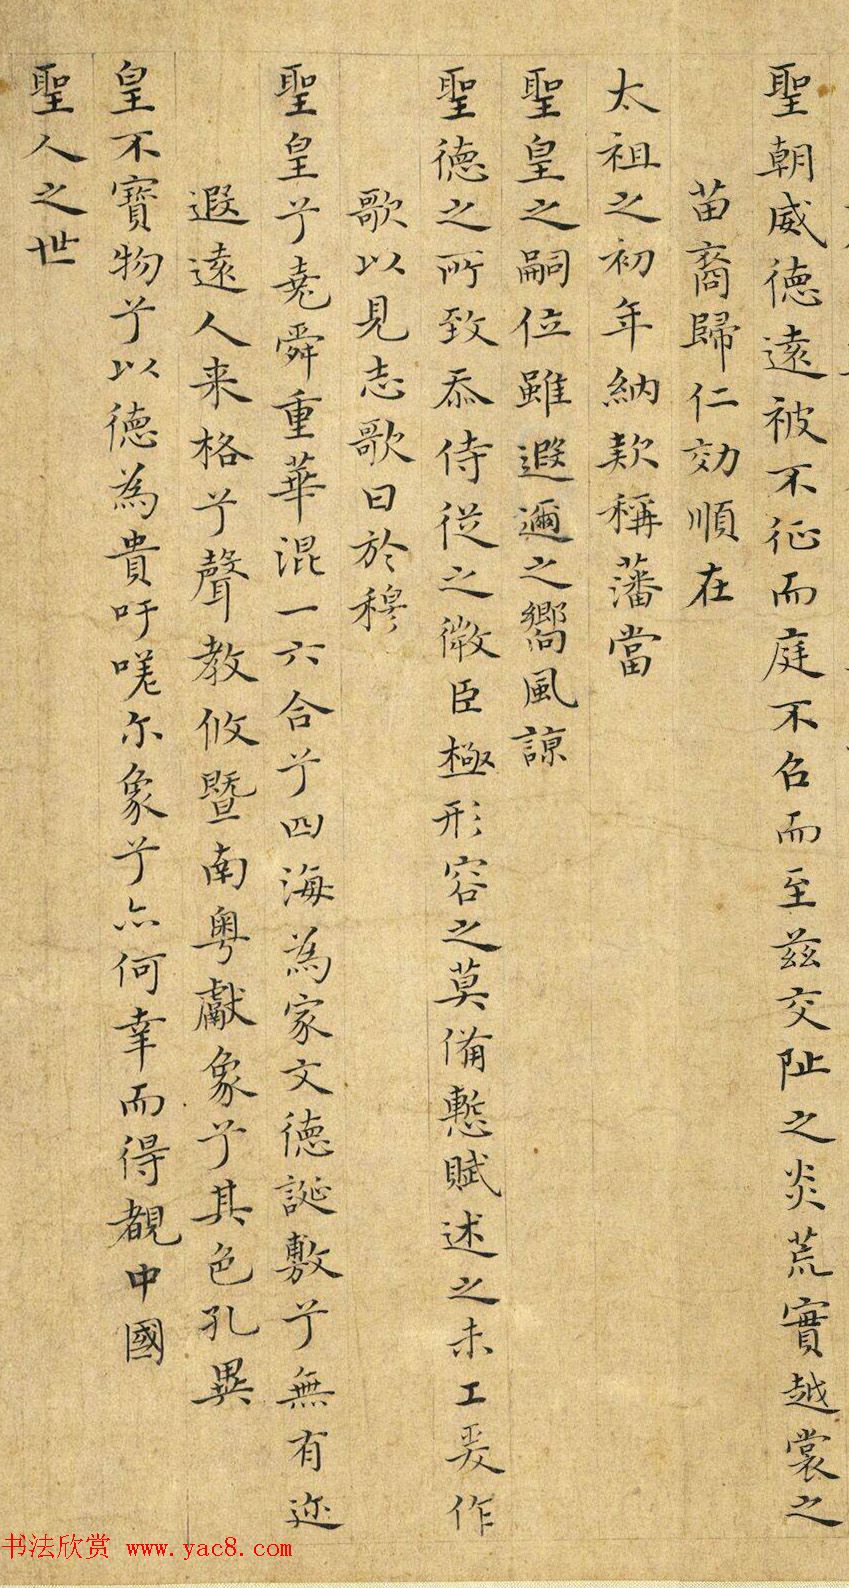 聖朝威德遠被不征而庭不召而至茲交阯之炎荒實越裳之
苗裔歸仁効順在
太祖之初年納欵稱藩當
聖皇之嗣位雖遐邇之嚮風諒
聖德之所致忝侍從之微臣極形容之莫備慙賦述之未工爰作
歌以見志歌曰於穆
聖皇兮堯舜重華混一六合兮四海為家文德誕敷兮無有迩
遐遠人来格兮聲教攸暨南粤獻象兮其色孔異
皇不寶物兮以德為貴吁嗟尔象兮亦何幸而得覩中國
聖人之世
书法欣赏 www.yac8.com